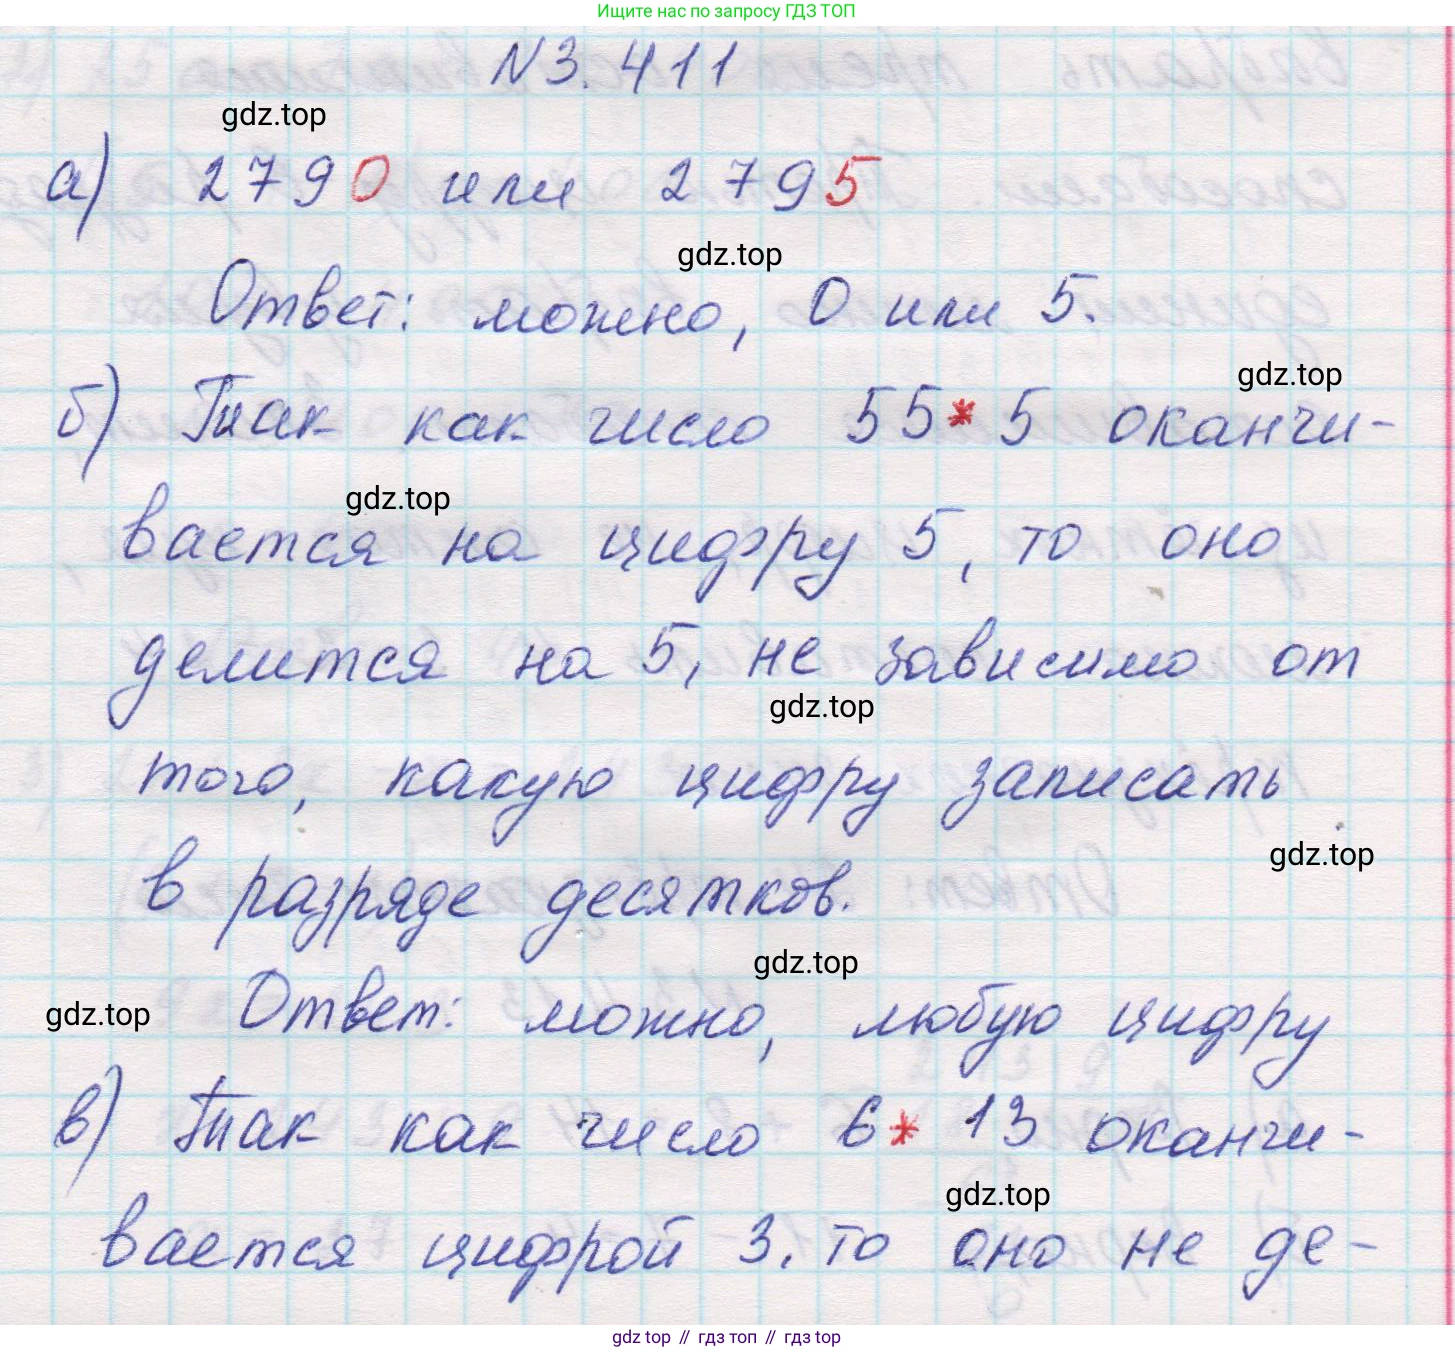 Ищите нас по запросу ГДЗ ТОП
N3.411
gdz.top
а) 2790 или 2795
gdz.top
Ответ: можно, 0 или 5.
gdz.top
б) Так как число 55*5 оканчи-
gdz.top
вается на цифру 5, то оно
делится на 5, не зависимо от
gdz.top
того, какую цифру записать
gdz.top
в разряде десятков.
gdz.top
gdz.top
Ответ: можно, любую цифру
в) Так как число 6*13 оканчи-
gdz.top
вается цифрой 3, то оно не де-
gdz top // гдз топ // гдз top